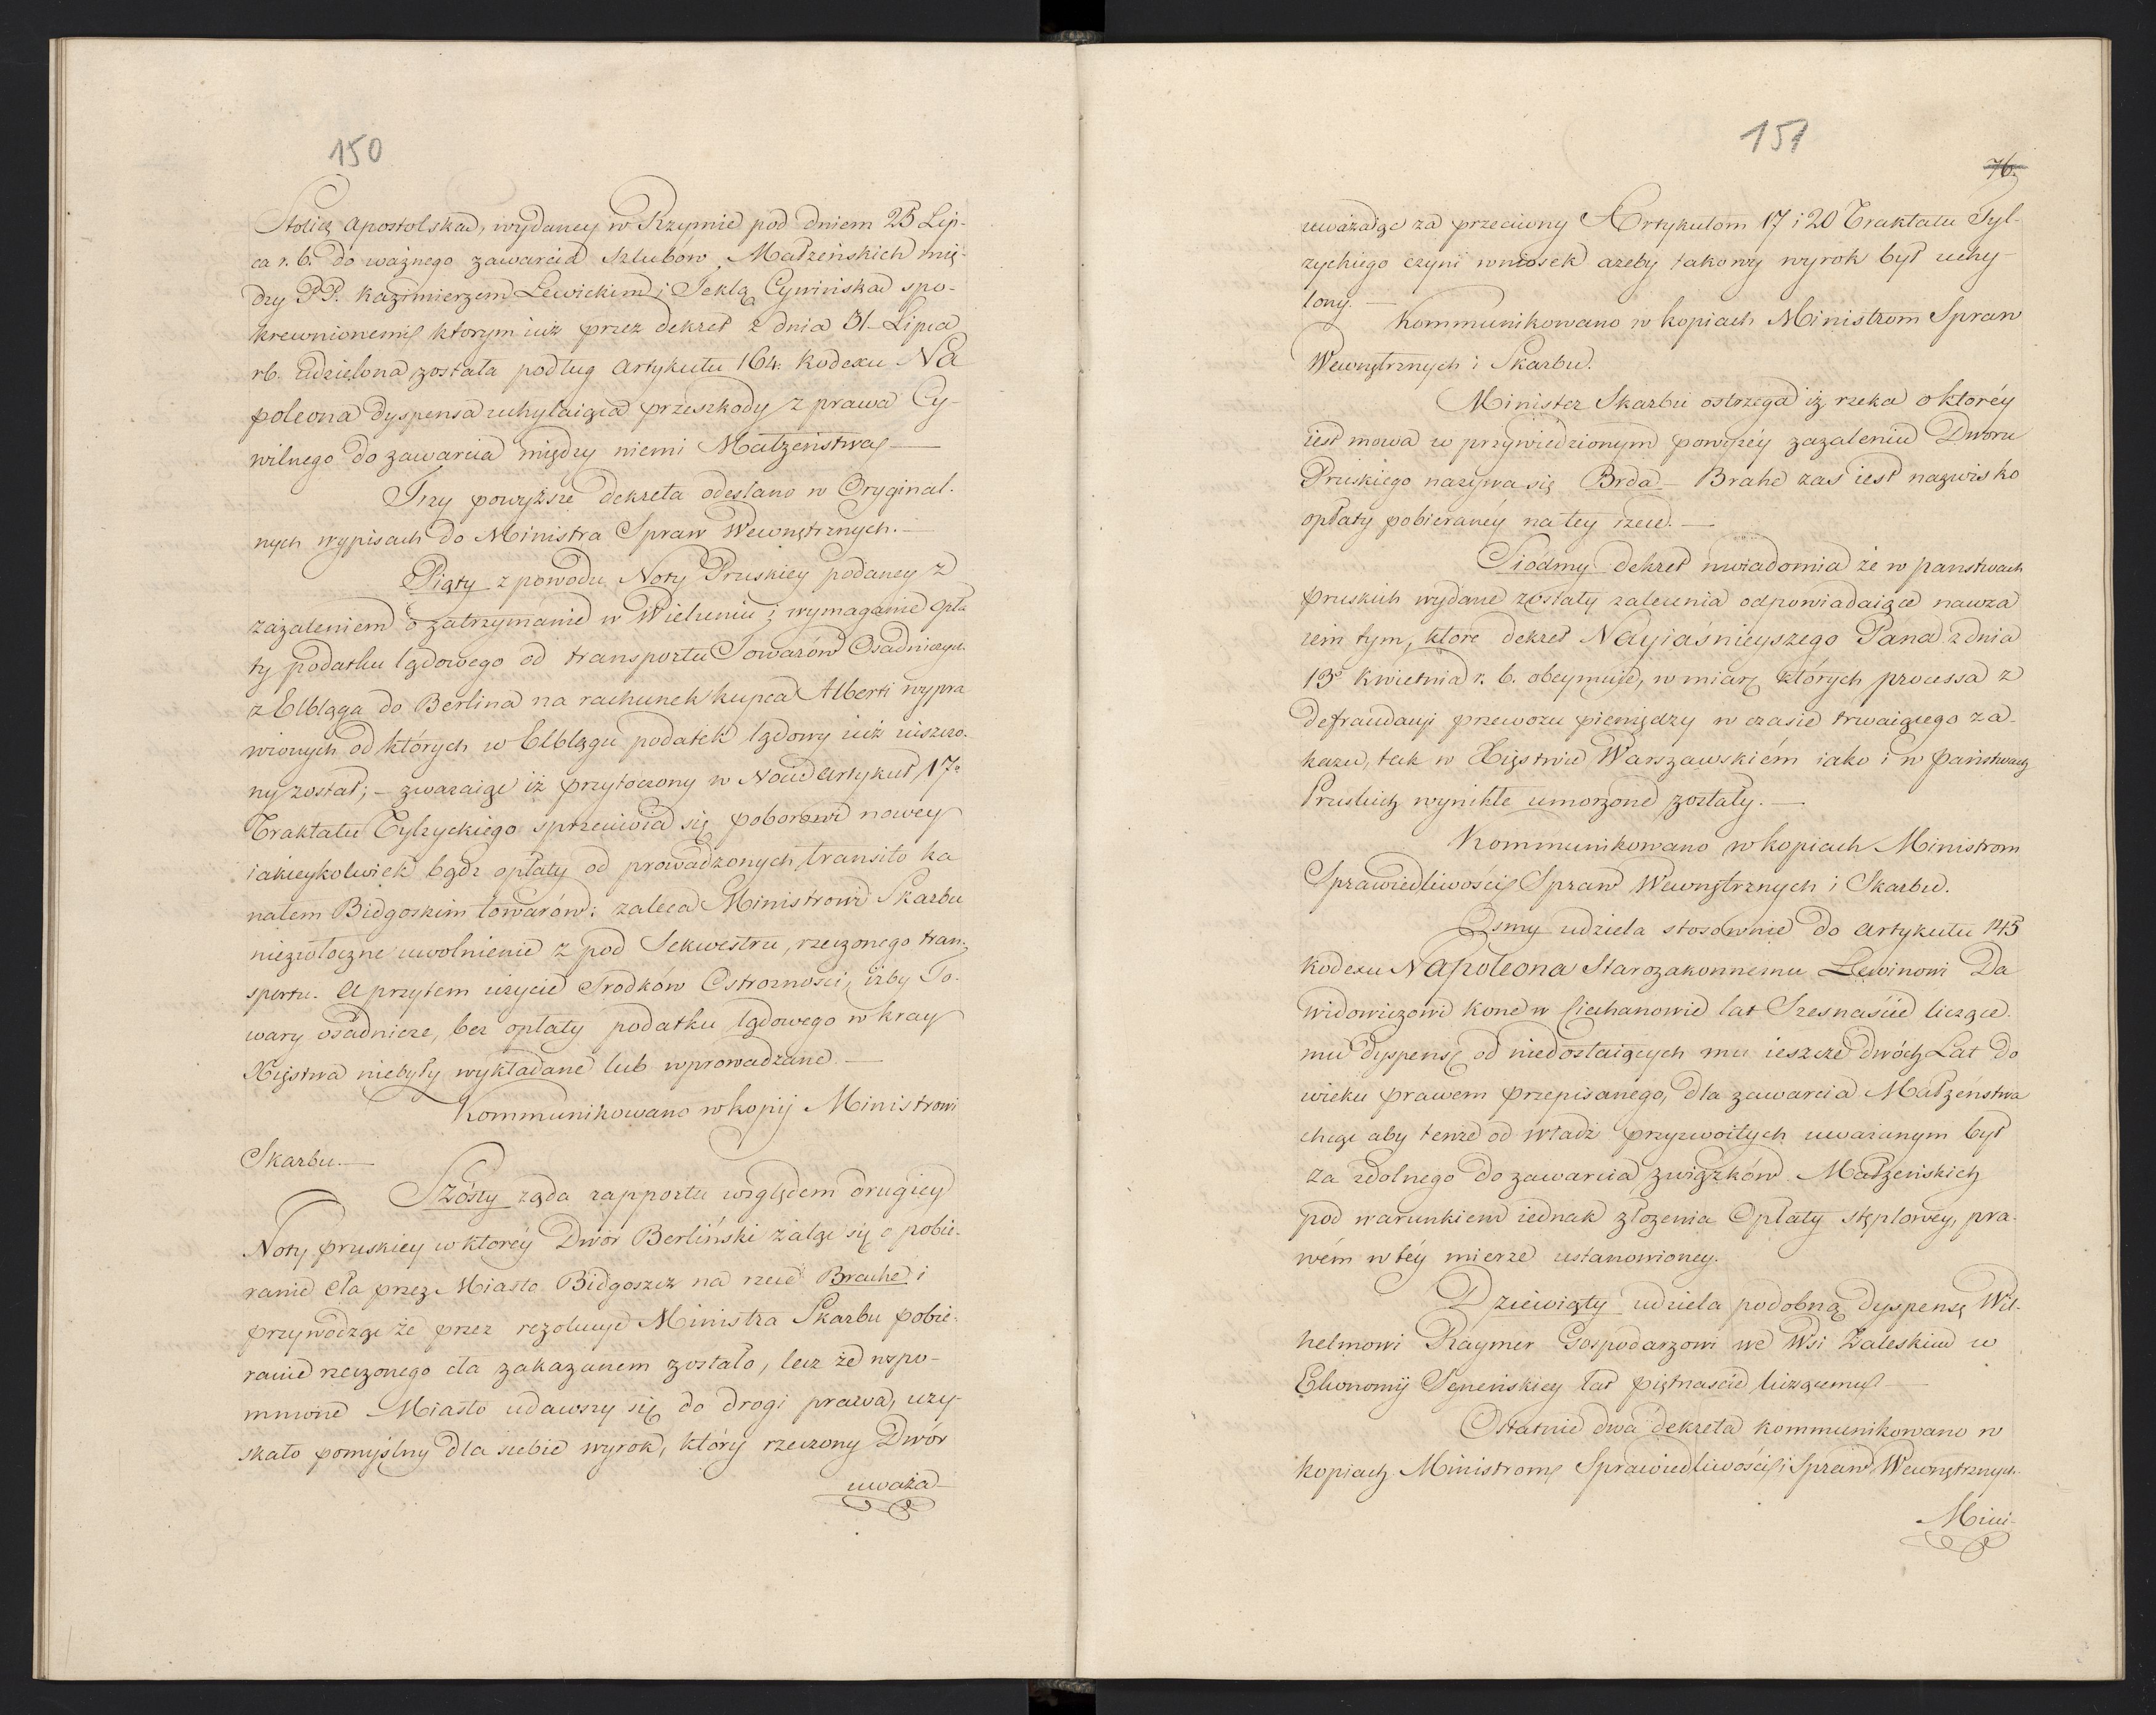 150
Stolicę Apostolską, wydaney w Rzymie pod dniem 25 Lip-
ca r. b. do ważnego zawarcia szlubów Małżeńskich mię-
dzy PP. Kazimierzem Lewickim i Teklą Cywińską spo-
krewnionemi, ktorym iuż przez dekret z dnia 31 Lipca
rb. udzielona została podług Artykułu 164. Kodexu Na
poleona dyspensa uchylaiąca przeszkody z prawa Cy-
wilnego do zawarcia między niemi Małżeństwa, —
Trzy powyższe dekreta odesłano w Oryginal-
nych wypisach do Ministra Spraw Wewnętrznych. —
Piąty z powodu Noty Pruskiey podaney z
zażaleniem o zatrzymanie w Wieluniu i wymaganie opła
ty podatku lądowego od transportu Towarów Osadniczych
z Elbląga do Berlina na rachunek kupca Alberti wypra
wionych od których w Elblągu podatek lądowy iuż uiszczo-
ny został; — zważaiąc iż przytoczony w Nocie Artykuł 17ty
Traktatu Tylżyckiego sprzeciwia się poborowi nowey
iakieykolwiek bądź opłaty od prowadzonych transito ka
nałem Bidgoskim towarów: zaleca Ministrowi Skarbu
niezwłoczne uwolnienie z pod Sekwestru, rzeczonego tran-
sportu. A przytem użycie Srodków Ostrożności, iżby To-
wary osadnicze, bez opłaty podatku lądowego w kray
Xięstwa niebyły wykładane lub wprowadzane. —
Kommunikowano w kopij Ministrowi
Skarbu. —
Szósty żąda rapportu względem drugiey
Noty pruskiey w ktorey Dwór Berliński żaląc się o pobie-
ranie Cła przez Miasto Bidgoszcz na rzece Brache i
przywodząc że przez rezolucyę Ministra Skarbu pobie-
ranie rzeczonego cła zakazanem zostało, lecz że wspo-
mnione Miasto udawszy się do drogi prawa, uzy-
skało pomyślny dla siebie wyrok, który rzeczony Dwór
uważa-
151
76.
uważaiąc za przeciwny Artykułom 17 i 20 Traktatu Tyl-
życkiego czyni wniosek ażeby takowy wyrok był uchy-
lony. —
Kommunikowano w kopiach Ministrom Spraw
Wewnętrznych i Skarbu.
Minister Skarbu ostrzega iż rzeka o ktoréy
iest mowa w przywiedzionym powyżéy zażaleniu Dworu
Pruskiego nazywa się Brda — Brahe zaś iest nazwisko
opłaty pobieranéy na tey rzece. —
Siódmy dekret uwiadomia że w państwach
pruskich wydane zostały zalecenia odpowiadaiące nawza
iem tym, które dekret Nayiaśnieyszego Pana z dnia
13º Kwietnia r. b. obeymuie, w miarę których processa z
defraudacyi przewozu pieniędzy w czasie trwaiącego za-
kazu, tak w Xięstwie Warszawskiém iako i w państwach
Pruskich wynikłe umorzone zostały. —
Kommunikowano w kopiach Ministrom
Sprawiedliwości, Spraw Wewnętrznych i Skarbu.
Osmy udziela stosownie do Artykułu 145
Kodexu Napoleona Starozakonnemu Lewinowi Da
widowiczowi Kone w Ciechanowie lat Szesnaście liczące-
mu dyspensę od niedostaiących mu ieszcze dwóch Lat do
wieku prawem przepisanego, dla zawarcia Małżeństwa
chcąc aby tenże od władz przyzwoitych uważanym był
za zdolnego do zawarcia związków Małżeńskich
pod warunkiem iednak złożenia Opłaty stęplowéy, pra-
wém w téy mierze ustanowioney.
Dziewiąty udziela podobną dyspensę Wil-
helmowi Raymer Gospodarzowi we Wsi Zaleskie w
Ekonomij Seneńskiey lat piętnaście liczącemu, —
Ostatnie dwa dekreta kommunikowano w
kopiach Ministrom, Sprawiedliwości, i Spraw Wewnętrznych.
Mini-